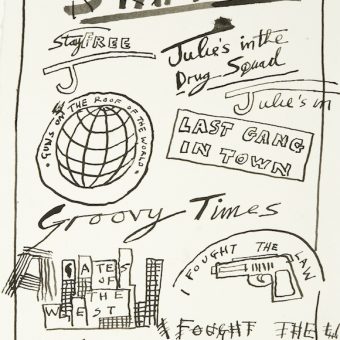 Stay FREE
J
Julie's in the
Drug Squad
Julie's in
GUNS ON THE ROOF OF THE WORLD
LAST GANG
IN TOWN
Groovy Times
GATES
OF
THE
WEST
I FOUGHT THE LAW
FOUGHT THE